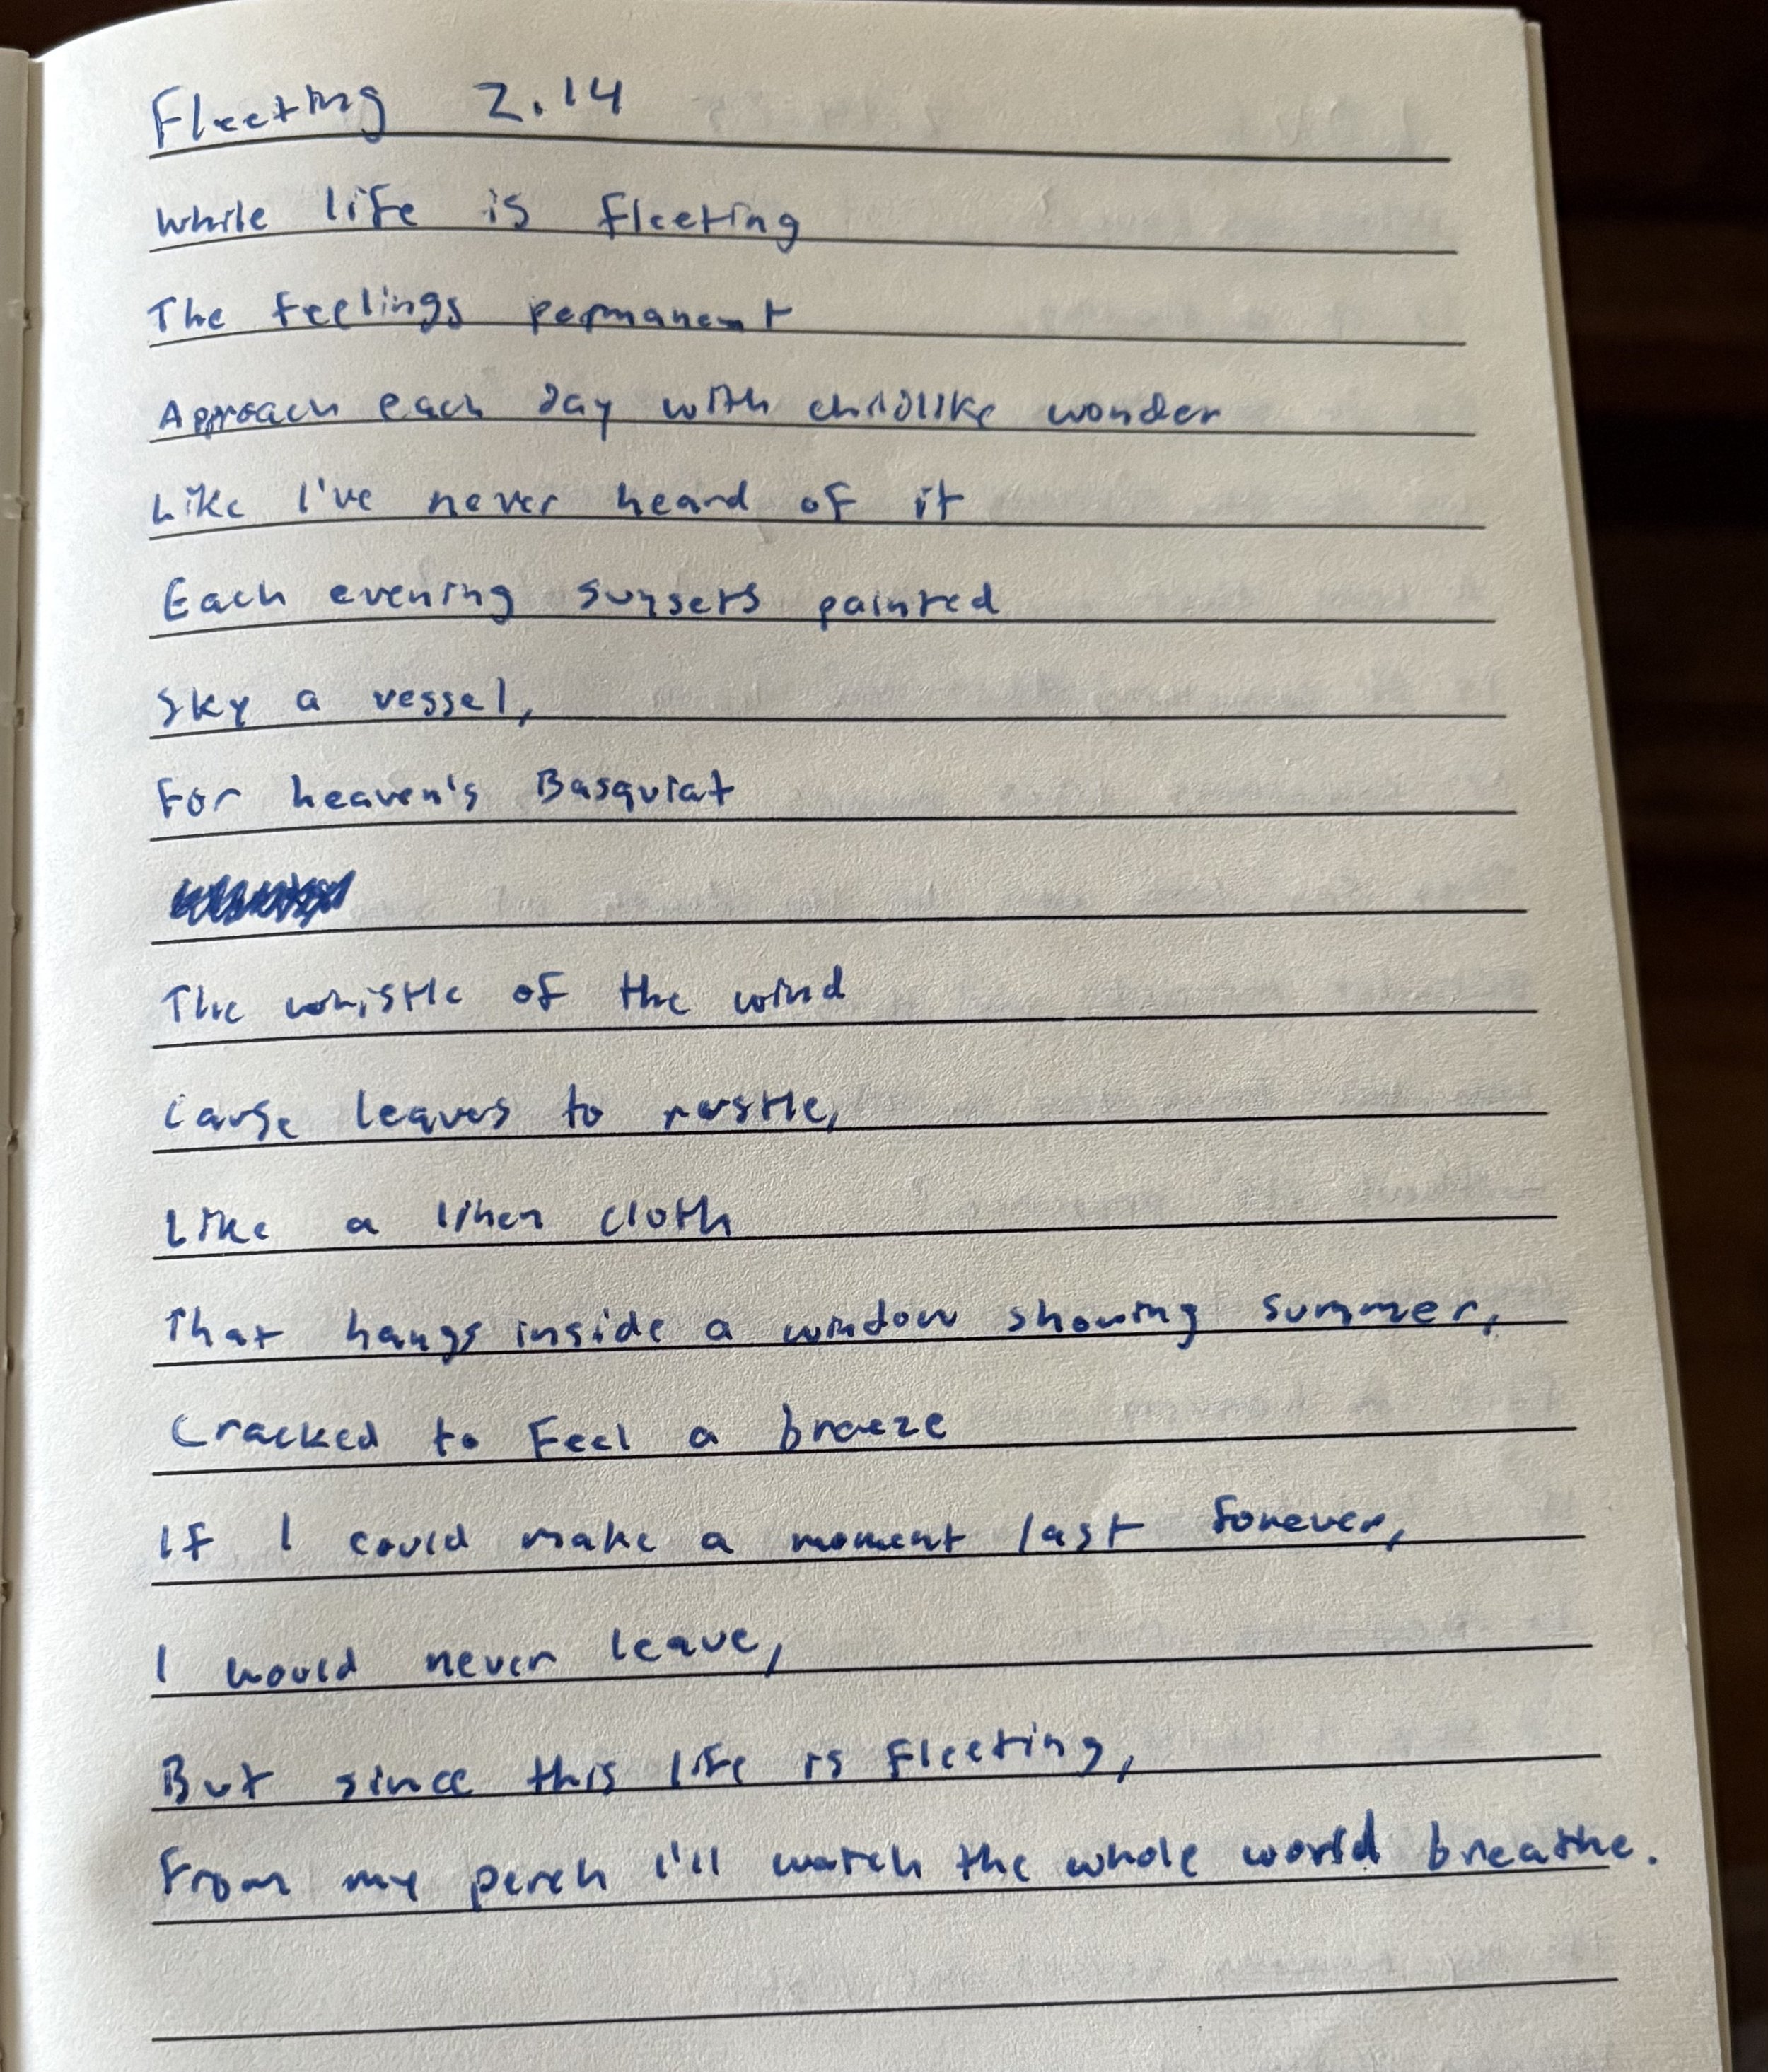 Fleeting 2.14
While life is fleeting
The feelings permanent
Approach each day with childlike wonder
Like I've never heard of it
Each evening sunsets painted
Sky a vessel,
For heaven's Basquiat
The whistle of the wind
Cause leaves to rustle,
Like a linen cloth
That hangs inside a window showing summer,
Cracked to feel a breeze
If I could make a moment last forever,
I would never leave,
But since this life is fleeting,
From my perch I'll watch the whole world breathe.